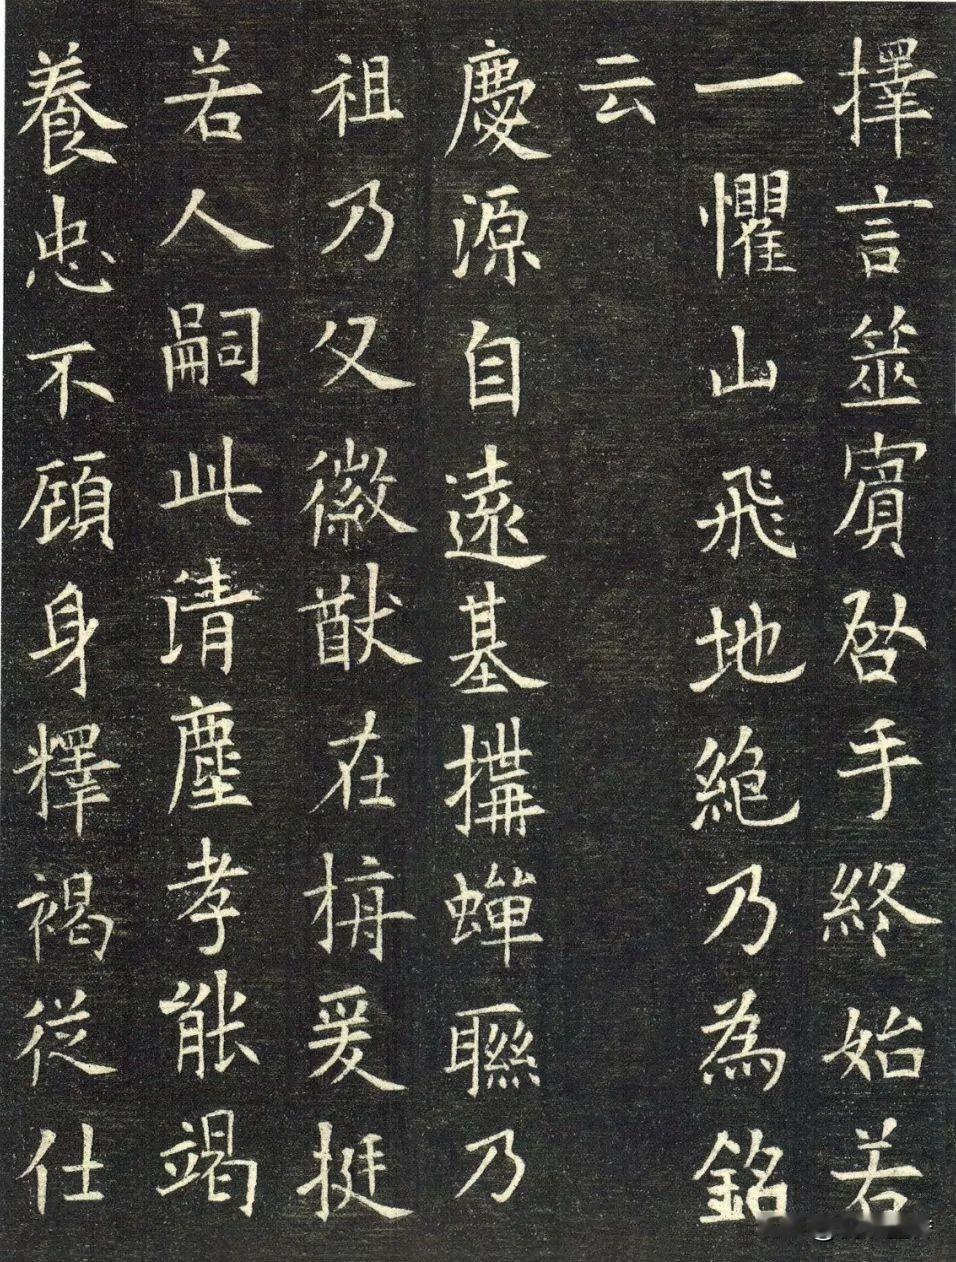 擇言筮賓启手終始若
一懼山飛地絶乃為銘
云
慶源自遠基搆蟬聯乃
祖乃父徽猷在旃爰挺
若人嗣此清塵孝能竭
養忠不顧身釋褐從仕